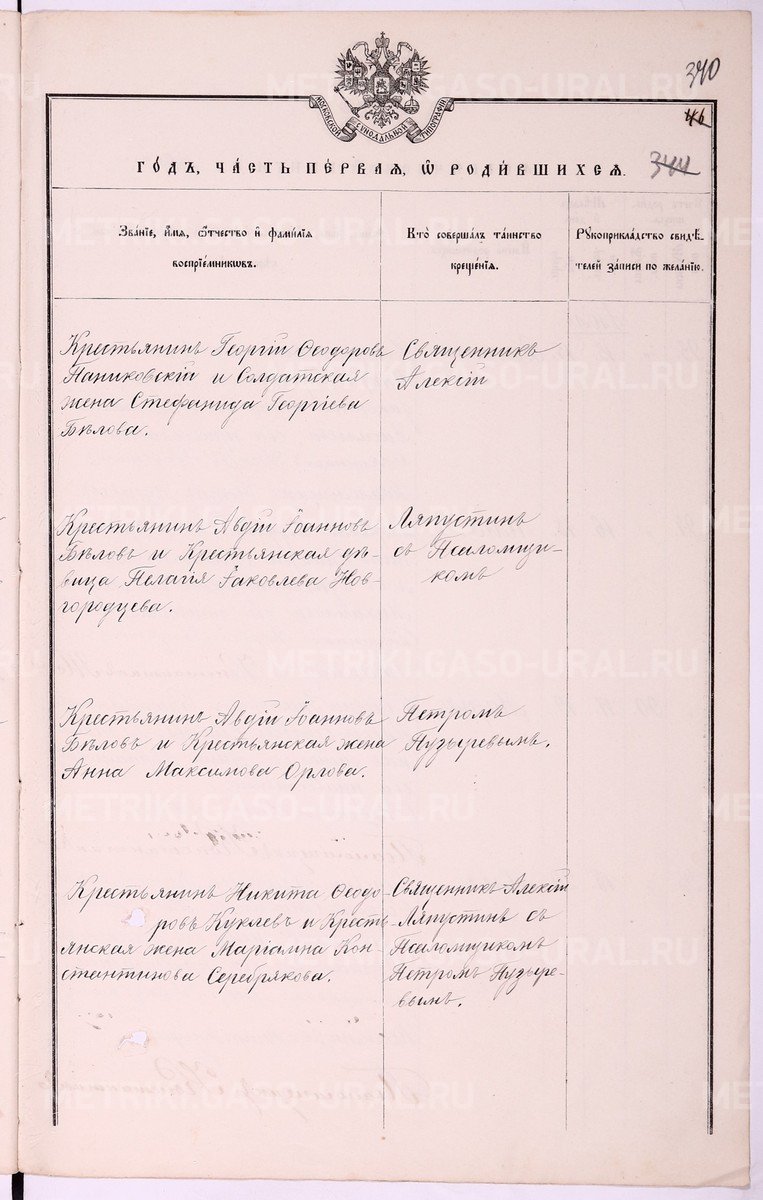 340
46
344
МОСКОВСКОЙ СѴНОДАЛЬНОЙ ТИПОГРАФІИ
ГО́ДЪ, ЧА́СТЬ ПЕ́РВАѦ, Ѡ҆ РОДИ́ВШИХСѦ.
Зва́нїе, и҆́мѧ, ѻ҆́тчество и҆ фами́лїѧ
воспрїе́мникѡвъ.
Кто̀ соверша́лъ та́инство
креще́нїѧ.
Рꙋкоприкла́дство свидѣ́-
телей за́писи по жела́нїю.
Крестьянинъ Георгій Ѳеодоровъ
Паниковскій и Солдатская
жена Стефанида Георгіева
Бѣлова.
Священникъ
Алексій
Крестьянинъ Авдій Іоанновъ
Бѣловъ и Крестьянская дѣ-
вица Пелагія Іаковлева Нов-
городцева.
Ляпустинъ
съ Псаломщи-
комъ
Крестьянинъ Авдій Іоанновъ
Бѣловъ и Крестьянская жена
Анна Максимова Орлова.
Петромъ
Пузыревымъ.
Крестьянинъ Никита Ѳеодо-
ровъ Куклевъ и Кресть-
янская жена Маріамна Кон-
стантинова Серебрякова.
Священникъ Алексій
Ляпустинъ съ
Псаломщикомъ
Петромъ Пузыре-
вымъ.
METRIKI.GASO-URAL.RU